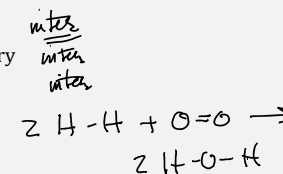 inter
ry inter
inter
2 H-H + O=O →
2 H-O-H